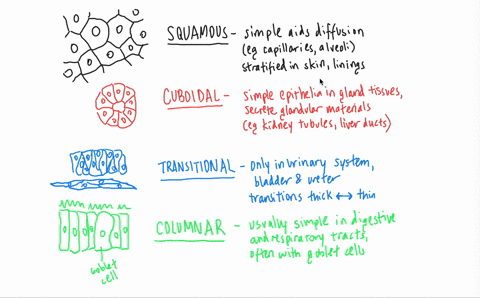 SQUAMOUS - simple aids diffusion
(eg capillaries, alveoli)
stratified in skin, linings
CUBOIDAL - simple epithelia in gland tissues,
secrete glandular materials
(eg kidney tubules, liver ducts)
TRANSITIONAL - only in urinary system,
bladder & ureter
transitions thick ↔ thin
COLUMNAR - usually simple in digestive
and respiratory tracts,
often with goblet cells
goblet
cell